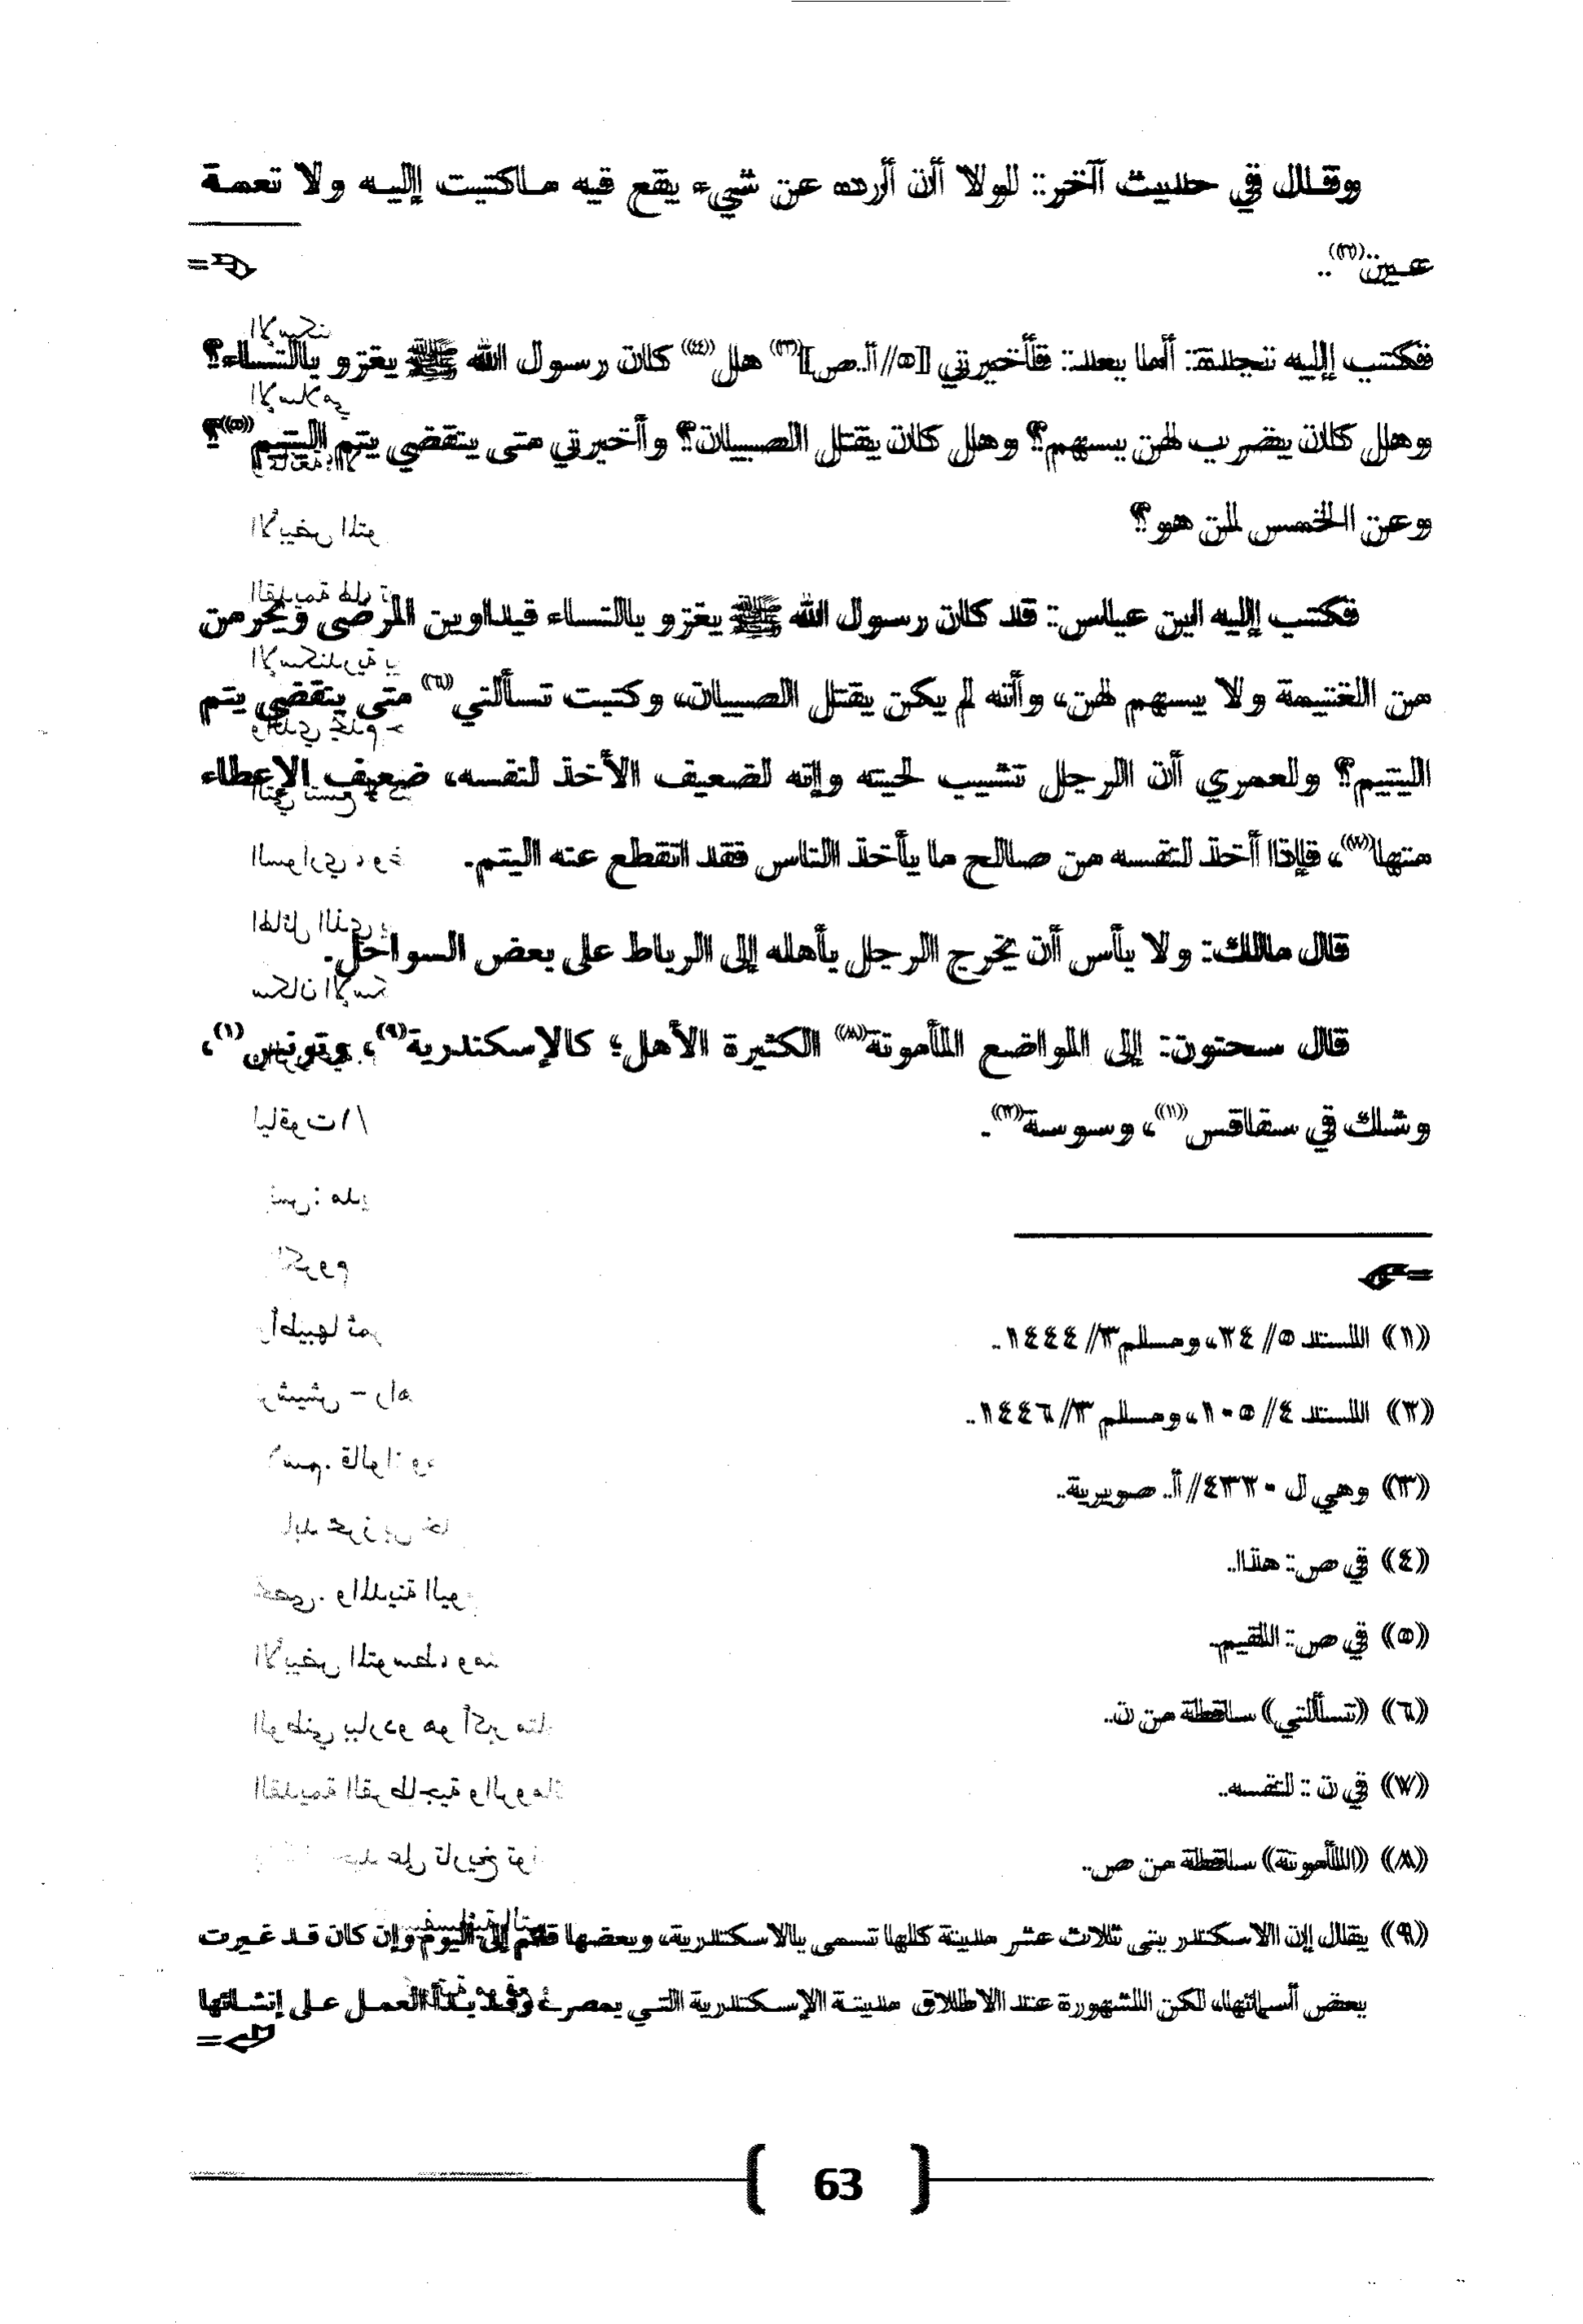 وقال في حديث آخر: لولا أن أرده عن شيء يقع فيه ما كتبت إليه ولا نعمة
عين(٢).
فكتب إليه نجدة: أما بعد: فأخبرني [٥/أ.ص](٣) هل(٤) كان رسول الله ﷺ يغزو بالنساء؟
وهل كان يضرب لهن بسهم؟ وهل كان يقتل الصبيان؟ وأخبرني متى ينقضي يتم اليتيم(٥)؟
وعن الخمس لمن هو؟
فكتب إليه ابن عباس: قد كان رسول الله ﷺ يغزو بالنساء فيداوين المرضى ويحرمن
من الغنيمة ولا يسهم لهن، وأنه لم يكن يقتل الصبيان، وكتبت تسألني(٦) متى ينقضي يتم
اليتيم؟ ولعمري أن الرجل تشيب لحيته وإنه لضعيف الأخذ لنفسه، ضعيف الإعطاء
منها(٧)، فإذا أخذ لنفسه من صالح ما يأخذ الناس فقد انقطع عنه اليتم.
قال مالك: ولا بأس أن يخرج الرجل بأهله إلى الرباط على بعض السواحل.
قال سحنون: إلى المواضع المأمونة(٨) الكثيرة الأهل؛ كالإسكندرية(٩)، وتونس(١)،
وشك في سفاقس(١١)، وسوسة(١٢).
=
(١) المسند ٥/ ٣٤، ومسلم ٣/ ١٤٤٤.
(٢) المسند ٤/ ١٠٥، ومسلم ٣/ ١٤٤٦.
(٣) وهي ل /أ. صويرية.
(٤) في ص: هذا.
(٥) في ص: القيم.
(٦) (تسألني) ساقطة من ن.
(٧) في ن: لنفسه.
(٨) (المأمونة) ساقطة من ص.
(٩) يقال إن الاسكندر بنى ثلاث عشر مدينة كلها تسمى بالاسكندرية، وبعضها قائم إلى اليوم وإن كان قد غيرت
بعض أسمائها، لكن المشهورة عند الاطلاق مدينة الإسكندرية التي بمصر وقد بدأ العمل على إنشائها
=
63